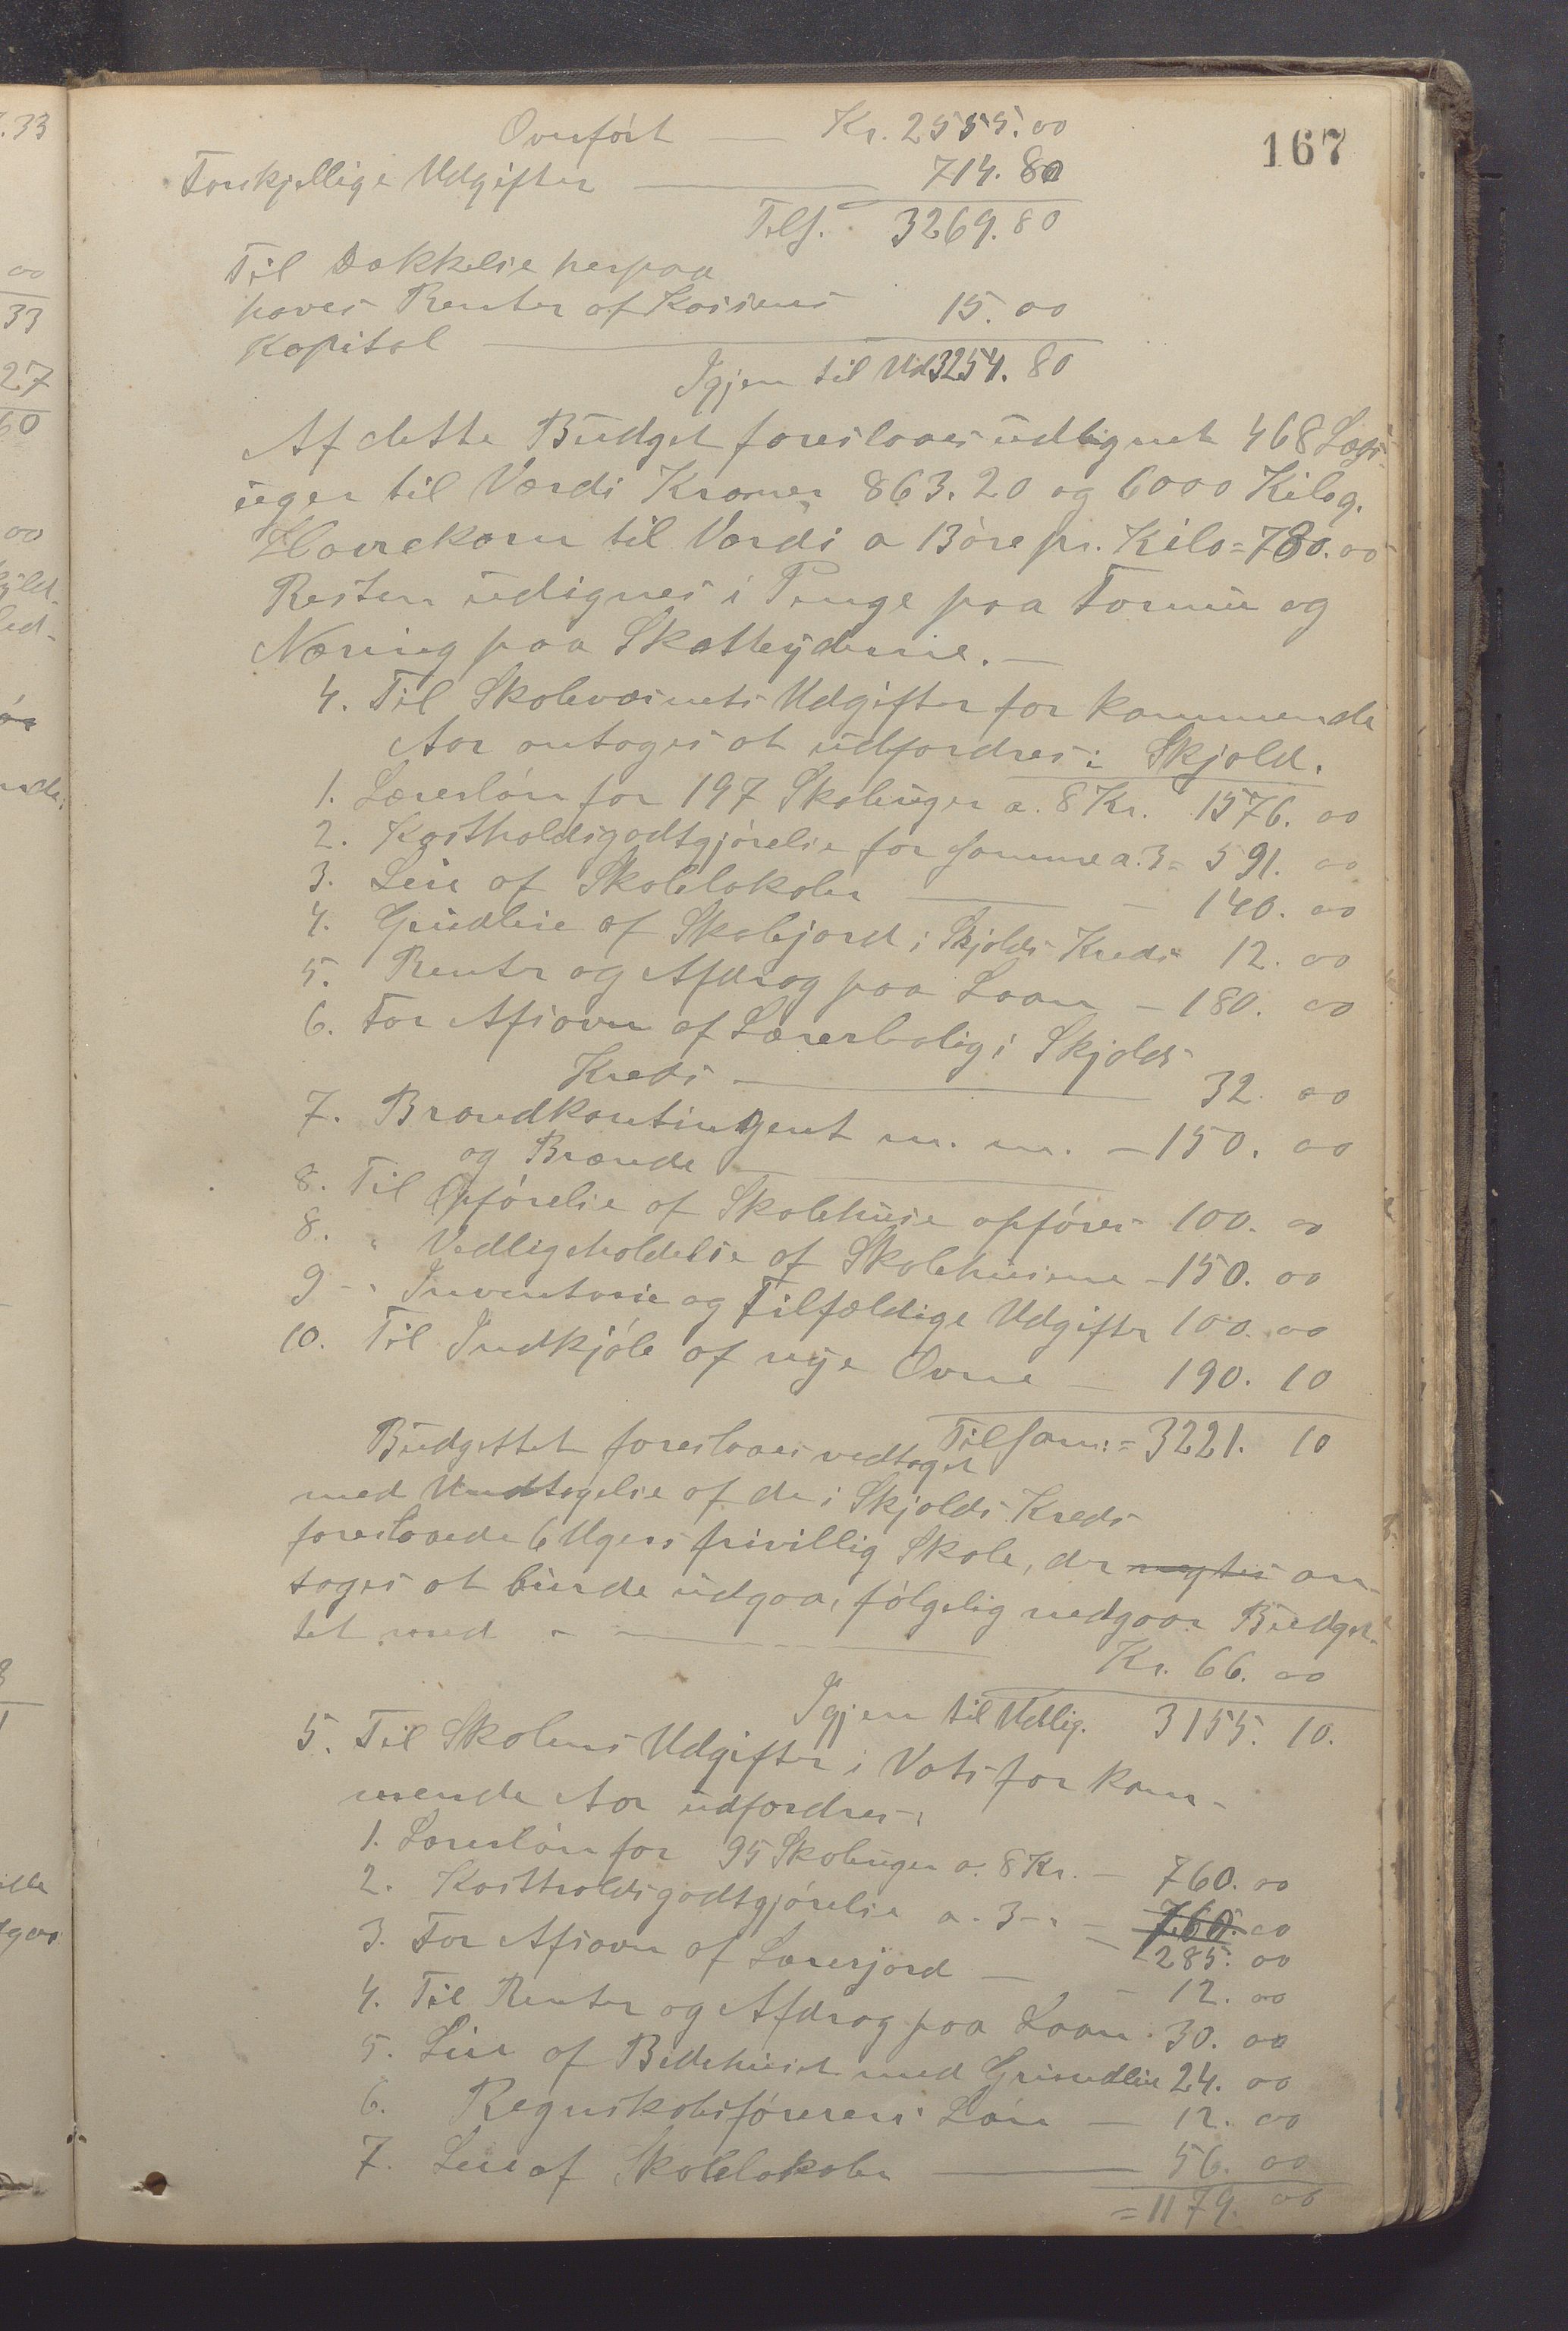 167
Overført — Kr. 2555.00
Forskjellige Udgifter — 714.80
Tils. 3269.80
Til Dækkelse herpaa
haves Renter af Kassens
Kapital — 15.00
Igjen til Ud 3254.80
Af dette Budget foreslaaes udlignet 468 Lægs-
uger til Værdi Kroner 863.20 og 6000 Kilog.
Havrekorn til Værdi a 13 øre pr. Kilo = 780.00
Resten udignes i Penge paa Formue og
Næring paa Skatteyderne. —
4. Til Skolevæsnets Udgifter for kommende
Aar antages at udfordres: Skjold.
1. Lærerløn for 197 Skoleuger a. 8 Kr. 1576.00
2. Kostholdsgodtgjørelse for samme a. 3 = 591.00
3. Leie af Skolelokaler — 140.00
4. Grudleie af Skolejord i Skjolds Kreds 12.00
5. Renter og Afdrag paa Laan — 180.00
6. For Afsavn af Lærerbolig i Skjolds
Kreds — 32.00
7. Brandkontingent m. m. — 150.00
og Brænde —
8. Til Opførelse af Skolehuse opføres 100.00
8. " Vedligeholdelse af Skolehusene — 150.00
9 - " Inventarie og Tilfældige Udgifter 100.00
10. Til Indkjøb af nye Ovne — 190.10
Tilsam: = 3221.10
Budgettet foreslaaes vedtaget
med Undtagelse af de i Skjolds Kreds
foreslaaede 6 Ugers frivillig Skole, der negtes an-
tages at burde udgaa, følgelig nedgaar Budget-
tet med — Kr. 66.00
Igjen til Udlig. 3155.10.
5. Til Skolens Udgifter i Vats for kom-
mende Aar udfordres:
1. Lærerløn for 95 Skoleuger a. 8 Kr. — 760.00
2. Kostholdsgodtgjørelse a. 3 - " — 760.00
285.00
3. For Afsavn af Lærerjord — 12.00
4. Til Renter og Afdrag paa Laan. 30.00
5. Leie af Bedehuset med Grundleie 24.00
6. Regnskabsførerens Løn — 12.00
7. Leie af Skolelokaler — 56.00
= 1179.00